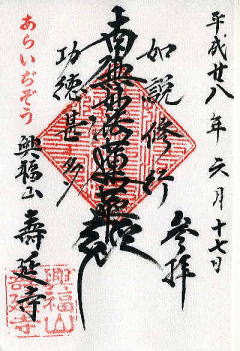 平成廿八年六月十七日
参拝
如説修行
南無妙法蓮華経
功徳甚多
あらいぢぞう
興福山 壽延寺
興福山
壽延寺